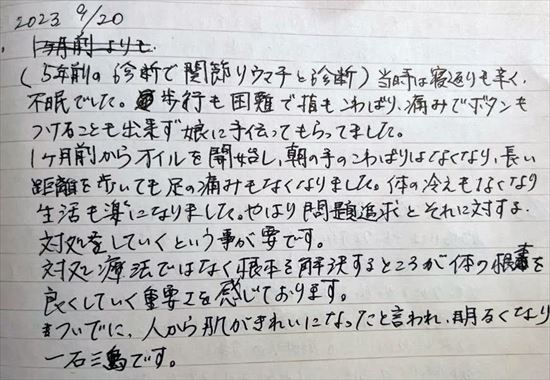 2023 9/20
1ヶ月前よりも
(5年前の診断で関節リウマチと診断)当時は寝返りも辛く、
不眠でした。歩行も困難で指もこわばり、痛みでボタンも
つけることも出来ず娘に手伝ってもらってました。
1ヶ月前からオイルを開始し、朝の手のこわばりはなくなり、長い
距離を歩いても足の痛みもなくなりました。体の冷えもなくなり
生活も楽になりました。やはり問題追求とそれに対する
対処をしていくという事が要です。
対処療法ではなく根本を解決するところが体の毒を
良くしていく重要さを感じております。
ついでに、人から肌がきれいになったと言われ、明るくなり
一石三鳥です。